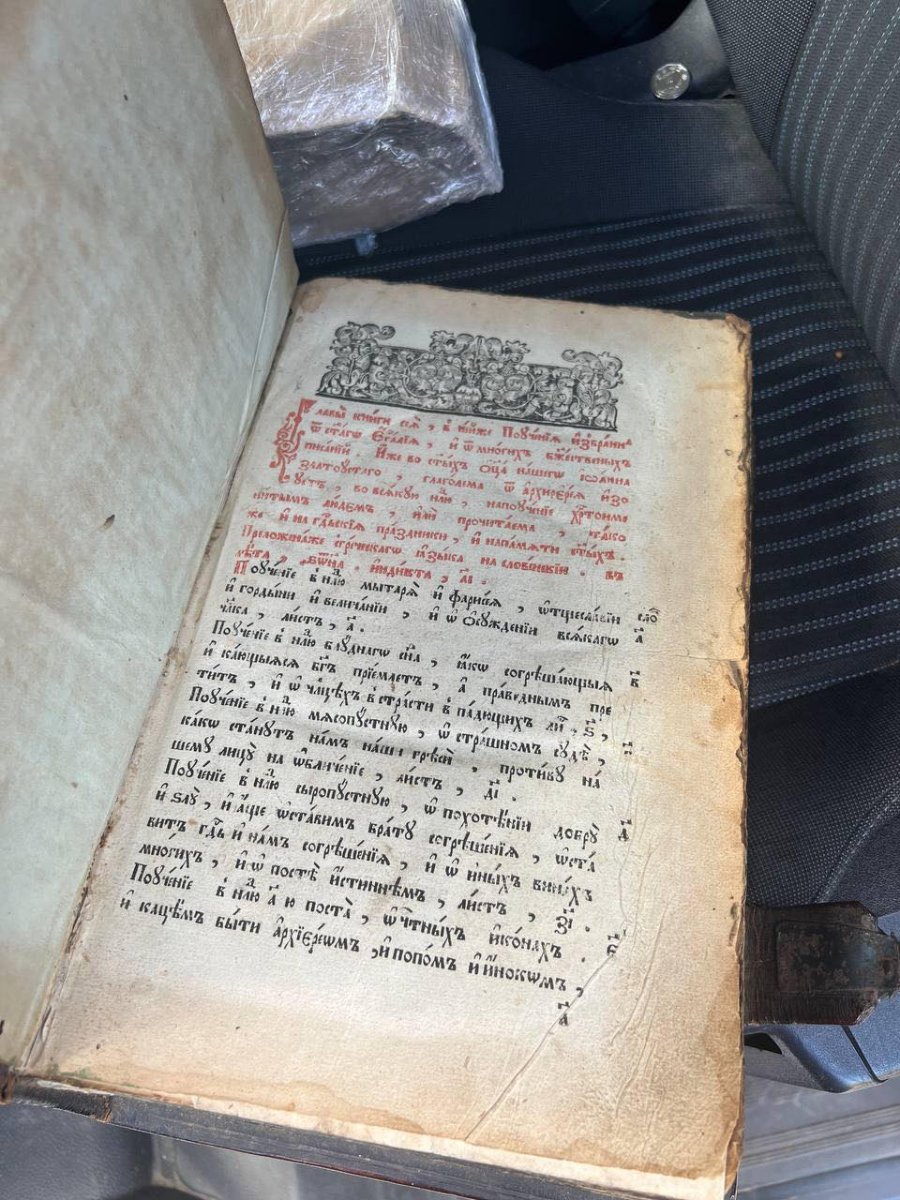 Главы̀ кни́ги сеѧ̀, в не́йже Поуче́нїѧ и҆збра́ннаѧ
ѿ ст҃а́гѡ Є҆ѵⷢ҇лїѧ, и҆ ѿ мно́гихъ бж҃е́ственыхъ
писа́нїй. И҆́же во ст҃ы́хъ ѻ҆ц҃а̀ на́шегѡ і҆ѡа́нна
златоу́стаго, глаго́лема ѿ а҆рхїере́ѧ и҆зо
у҆́стъ, во всѧ́кую нлⷣю, на поуче́нїе хрⷭ҇тоиме
ни́тымъ лю́демъ, и҆лѝ прочита́ема, та́ко
же и҆ на гдⷭ҇ьскїѧ пра́здники, и҆ на па́мѧти ст҃ы́хъ.
Преложи́на же є҆ гре́ческагѡ ѧ҆зы́ка на слове́нскїй. въ
лѣ́та, індикта, а҃і.
Поуче́нїе в нлⷣю мытарѧ̀ и҆ фарисе́ѧ, ѡ҆ тщесла́вїи сло
и҆ горды́ни и҆ велича́нїи, и҆ ѡ҆ ѻ҆сужде́нїи всѧ́кагѡ а҃
чл҃ка, ли́стъ, а҃.
Поуче́нїе в нлⷣю блу́днагѡ сн҃а, ꙗ҆́кѡ согрѣша́ющыѧ в҃
и҆ ка́ющыѧсѧ бг҃ъ прїе́млетъ, а҆ пра́веднымъ пре
ти́тъ, и҆ ѡ҆ чл҃цѣхъ в стра́сти в па́дающихъ ли́, ѕ҃,
Поуче́нїе в нлⷣю мѧсопу́стную, ѡ҆ стра́шномъ судѣ̀, г҃
ка́кѡ ста́нутъ на́мъ на́ши грѣсѝ, проти́ву на́
шему лицу̀ на ѡ҆бличе́нїе, ли́стъ, д҃і.
Поуче́нїе в нлⷣю сыропу́стную, ѡ҆ похотѣ́нїи добру̀ д҃
и҆ ѕлу̀, и҆ а҆́ще ѡ҆ста́вимъ бра́ту согрѣше́нїѧ, ѡ҆ста́
витъ гдⷭ҇ь и҆ на́мъ согрѣше́нїѧ, и҆ ѡ҆ и҆ны́хъ вина́хъ
мно́гихъ, и҆ ѡ҆ постѣ̀ и҆́стиннѣмъ, ли́стъ, з҃і.
Поуче́нїе в нлⷣю а҃ ю поста̀, ѡ҆ чⷭ҇тны́хъ и҆ко́нахъ. є҃
и҆ кацѣ́мъ бы́ти а҆рхїере́ѡмъ, и҆ попо́мъ и҆ и҆́нокѡмъ,